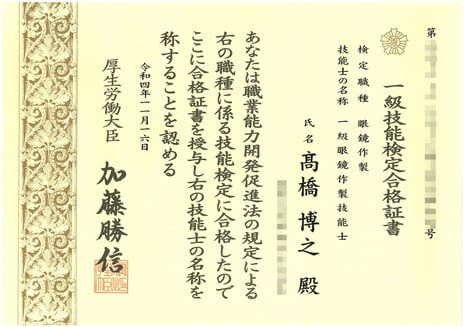 第
号
一級技能検定合格証書
検定職種 眼鏡作製
技能士の名称 一級眼鏡作製技能士
氏名 髙橋博之 殿
あなたは職業能力開発促進法の規定による
右の職種に係る技能検定に合格したので
ここに合格証書を授与し右の技能士の名称を
称することを認める
令和四年一一月一六日
厚生労働大臣 加藤勝信